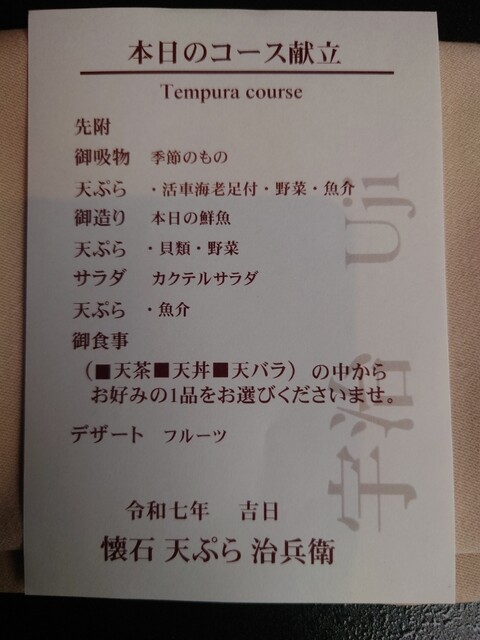 本日のコース献立
Tempura course
先附
御吸物 季節のもの
天ぷら ・活車海老足付・野菜・魚介
御造り 本日の鮮魚
天ぷら ・貝類・野菜
サラダ カクテルサラダ
天ぷら ・魚介
御食事
（■天茶■天丼■天バラ）の中から
お好みの1品をお選びくださいませ。
デザート フルーツ
令和七年 吉日
懐石 天ぷら 治兵衛
宇治 Uji